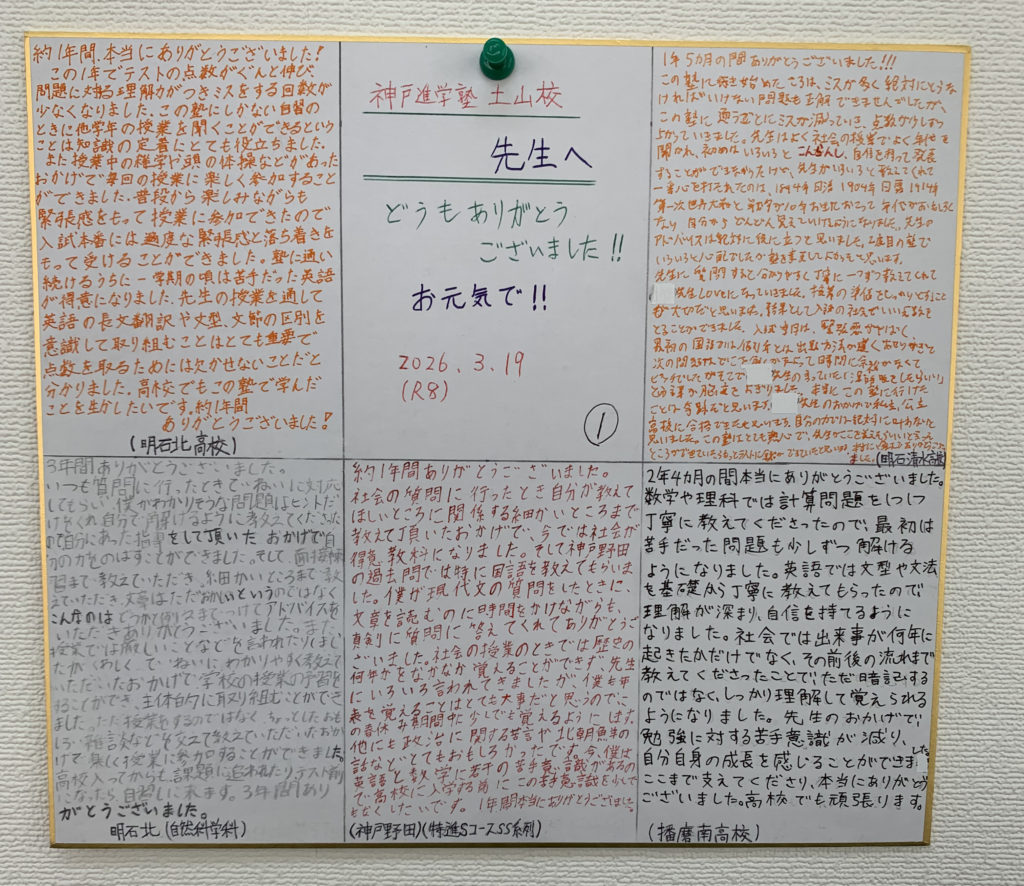 約1年間、本当にありがとうございました!
この1年でテストの点数がぐんと伸び、
問題に対する理解力がつきミスをする回数が
少なくなりました。この塾にしかない自習の
ときに他学年の授業を聞くことができるという
ことは知識の定着にとても役立ちました。
また授業中の雑学や頭の体操などがあった
おかげで毎回の授業に楽しく参加すること
ができました。普段から楽しみながらも
緊張感をもって授業に参加できたので
入試本番には適度な緊張感と落ち着きを
もって受けることができました。塾に通い
続けるうちに一学期の頃は苦手だった英語
が得意になりました。先生の授業を通して
英語の長文翻訳や文型、文節の区別を
意識して取り組むことはとても重要で
点数を取るためには欠かせないことだと
分かりました。高校でもこの塾で学んだ
ことを生かしたいです。約1年間
ありがとうございました!
(明石北高校)
神戸進学塾 土山校
先生へ
どうもありがとう
ございました!!
お元気で!!
2026.3.19
(R8)
①
1年5カ月の間ありがとうございました!!!
この塾に通き始めたころは、ミスが多く絶対にとらな
ければいけない問題も正解できませんでしたが、
この塾に通うたびにミスが減っていき、点数が少しずつ
上がっていきました。先生はよく社会の授業でよく年代を
聞かれ、初めはいろいろとこんらんし、自信を持って発言
することができなかったけど、先生がいろいろと教えてくれて
一番心を打たれたのは、1894年日清 1904年日露 1914年
第一次世界大戦と
自分からどんどん覚えていけるようになりました。先生の
アドバイスは絶対に役に立つと思いました。2度目の塾で
先生に質問すると分かりやすく丁寧に一つずつ教えてくれて
先生Loveになっていきました。
とることができました。入試当日は、緊張感がすごく
先生のおかげで私立、公立
高校に合格できたと
(明石清水高校)
3年間ありがとうございました。
いつも質問に行ったときていねいに対応
してもらい、僕がわかりそうな問題はヒントだ
けをくれ自分で解けるように教えてくださった
ので自分にあった指導をして頂いた おかげで自
分の力をのばすことができました。そして、面接練
習まで教えていただき、細かいところまで教
えていただき、文章はただおかしいというのではなく
こんなのはどうかと例文までつけてアドバイスを
いただきありがとうございました。また
授業では厳しいことなどを言われたりしまし
たが、くわしく、ていねいに、わかりやすく教えて
いただいたおかげで学校の授業の予習を
することができ、主体的に取り組むことができ
ました。ただ授業をするのではなく、ちょっとしたおも
しろい雑談などを交えて教えていただいたおか
げで楽しく授業に参加することができました。
高校入ってからも課題に追われたり、テスト前
になったら自習しに来ます。3年間あり
がとうございました。
明石北(自然科学科)
約1年間ありがとうございました。
社会の質問に行ったとき自分が教えて
ほしいところに関係する細かいところまで
教えて頂いたおかげで、今では社会が
得意教科になりました。そして神戸野田
の過去問では特に国語を教えてもらいま
した。僕が現代文の質問をしたときに、
文章を読むのに時間をかけながらも、
真剣に質問に答えてくれてありがとうご
ざいました。社会の授業のときでは歴史の
何年かをなかなか覚えることができず、先生
にいろいろ言われてきましたが、僕も年
表を覚えることはとても大事だと思うので、こ
の春休み期間中に少しでも覚えるようにします。
他にも政治に関する名言や北朝鮮の
話などとてもおもしろかったです。今、僕は
英語と数学に若干の苦手意識があるの
で、高校に入学する前にこの苦手意識を少しで
もなくしたいです。1年間本当にありがとうございました。
(神戸野田)(特進SコースSS系列)
2年4カ月の間本当にありがとうございました。
数学や理科では計算問題を1つ1つ
丁寧に教えてくださったので、最初は
苦手だった問題も少しずつ解ける
ようになりました。英語では文型や文法
を基礎から丁寧に教えてもらったので
理解が深まり、自信を持てるように
なりました。社会では出来事が何年に
起きたかだけでなく、その前後の流れまで
教えてくださったことで、ただ暗記する
のではなく、しっかり理解して覚えられる
ようになりました。先生のおかげで
勉強に対する苦手意識が減り、
自分自身の成長を感じることができました。
ここまで支えてくださり、本当にありがとう
ございました。高校でも頑張ります。
(播磨南高校)